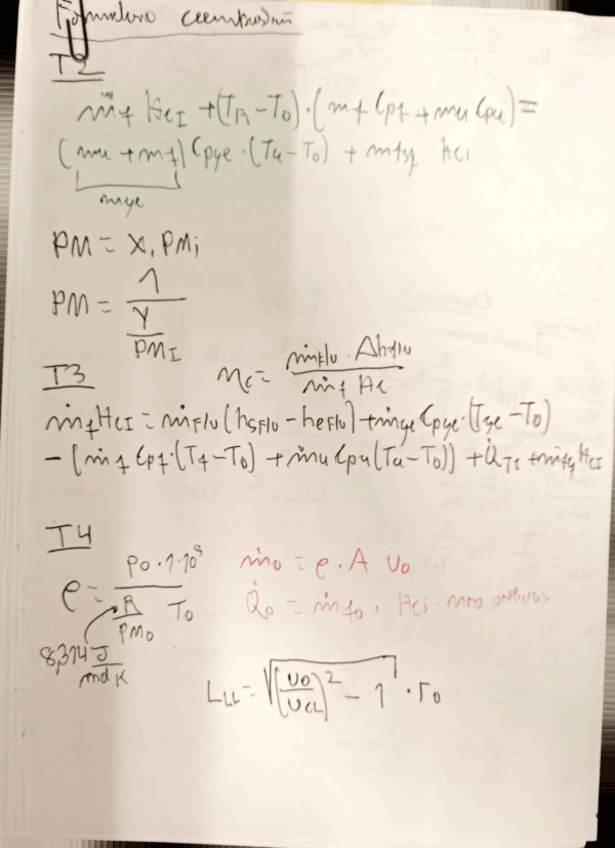 Formulario combustión
T2
ṁf HcI + (TA - T0) · (mf Cpf + mu Cpu) =
(mu + mf) Cpge · (Tu - T0) + mfsq · hci
mge
PM = Xi PMi
PM = 1 / (Y / PMI)
T3
ηc = ṁflu · Δhflu / ṁf Hc
ṁf HcI = ṁFlu (hsFlu - heFlu) + ṁge Cpge · (Tge - T0)
- [ṁf Cpf · (Tf - T0) + ṁu Cpu (Ta - T0)] + Q̇TI + ṁfq HcI
T4
ρ = P0 · 1·10⁵ / (R / PM0 · T0)
8,314 J / mol K
ṁ0 = ρ · A · U0
Q̇0 = ṁf0 · Hci · nro
LLL = √((U0 / UCL)² - 1) · r0